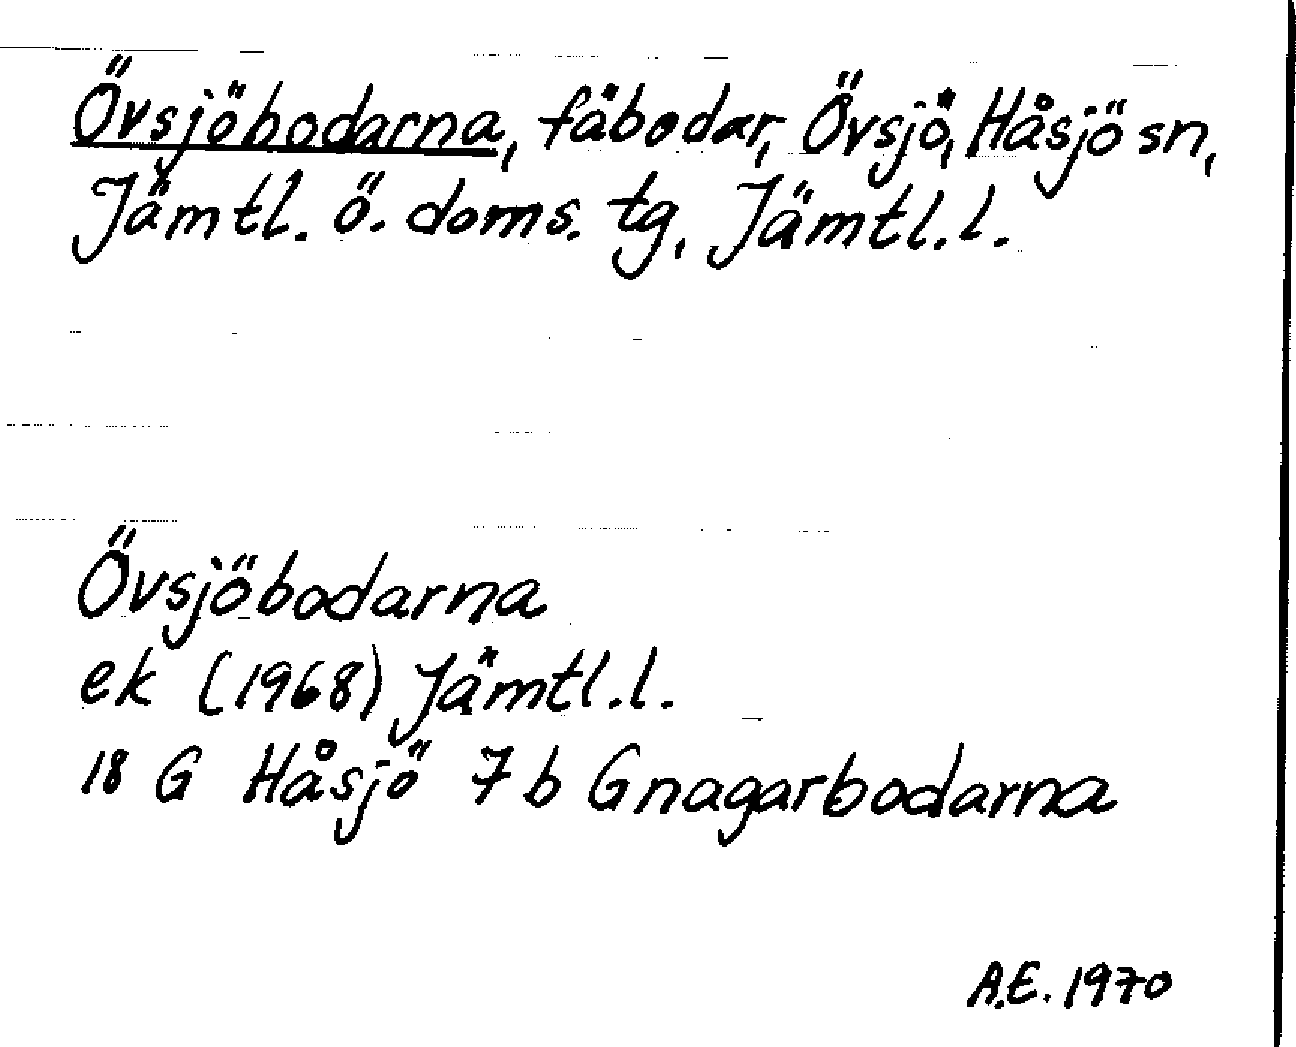 Övsjöbodarna, fäbodar, Övsjö, Håsjö sn,
Jämtl. ö. doms. tg, Jämtl. l.
Övsjöbodarna
ek (1968) Jämtl. l.
18 G Håsjö 7 b Gnagarbodarna
A.E. 1970